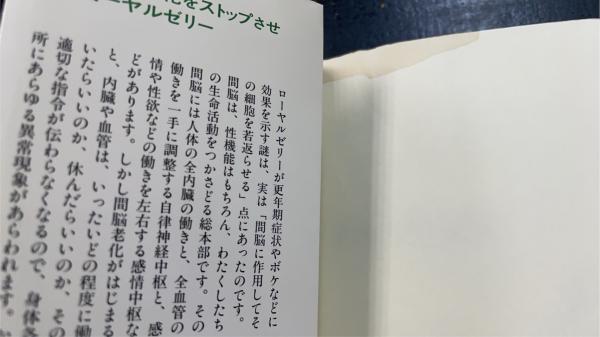 化をストップさせ
ーヤルゼリー
ローヤルゼリーが更年期症状やボケなどに
効果を示す謎は、実は「間脳に作用してそ
の細胞を若返らせる」点にあったのです。
間脳は、性機能はもちろん、わたくしたち
の生命活動をつかさどる総本部です。その
間脳には人体の全内臓の働きと、全血管の
働きを一手に調整する自律神経中枢と、感
情や性欲などの働きを左右する感情中枢な
どがあります。しかし間脳老化がはじまる
と、内臓や血管は、いったいどの程度に働
いたらいいのか、休んだらいいのか、その
適切な指令が伝わらなくなるので、身体各
所にあらゆる異常現象があらわれます。